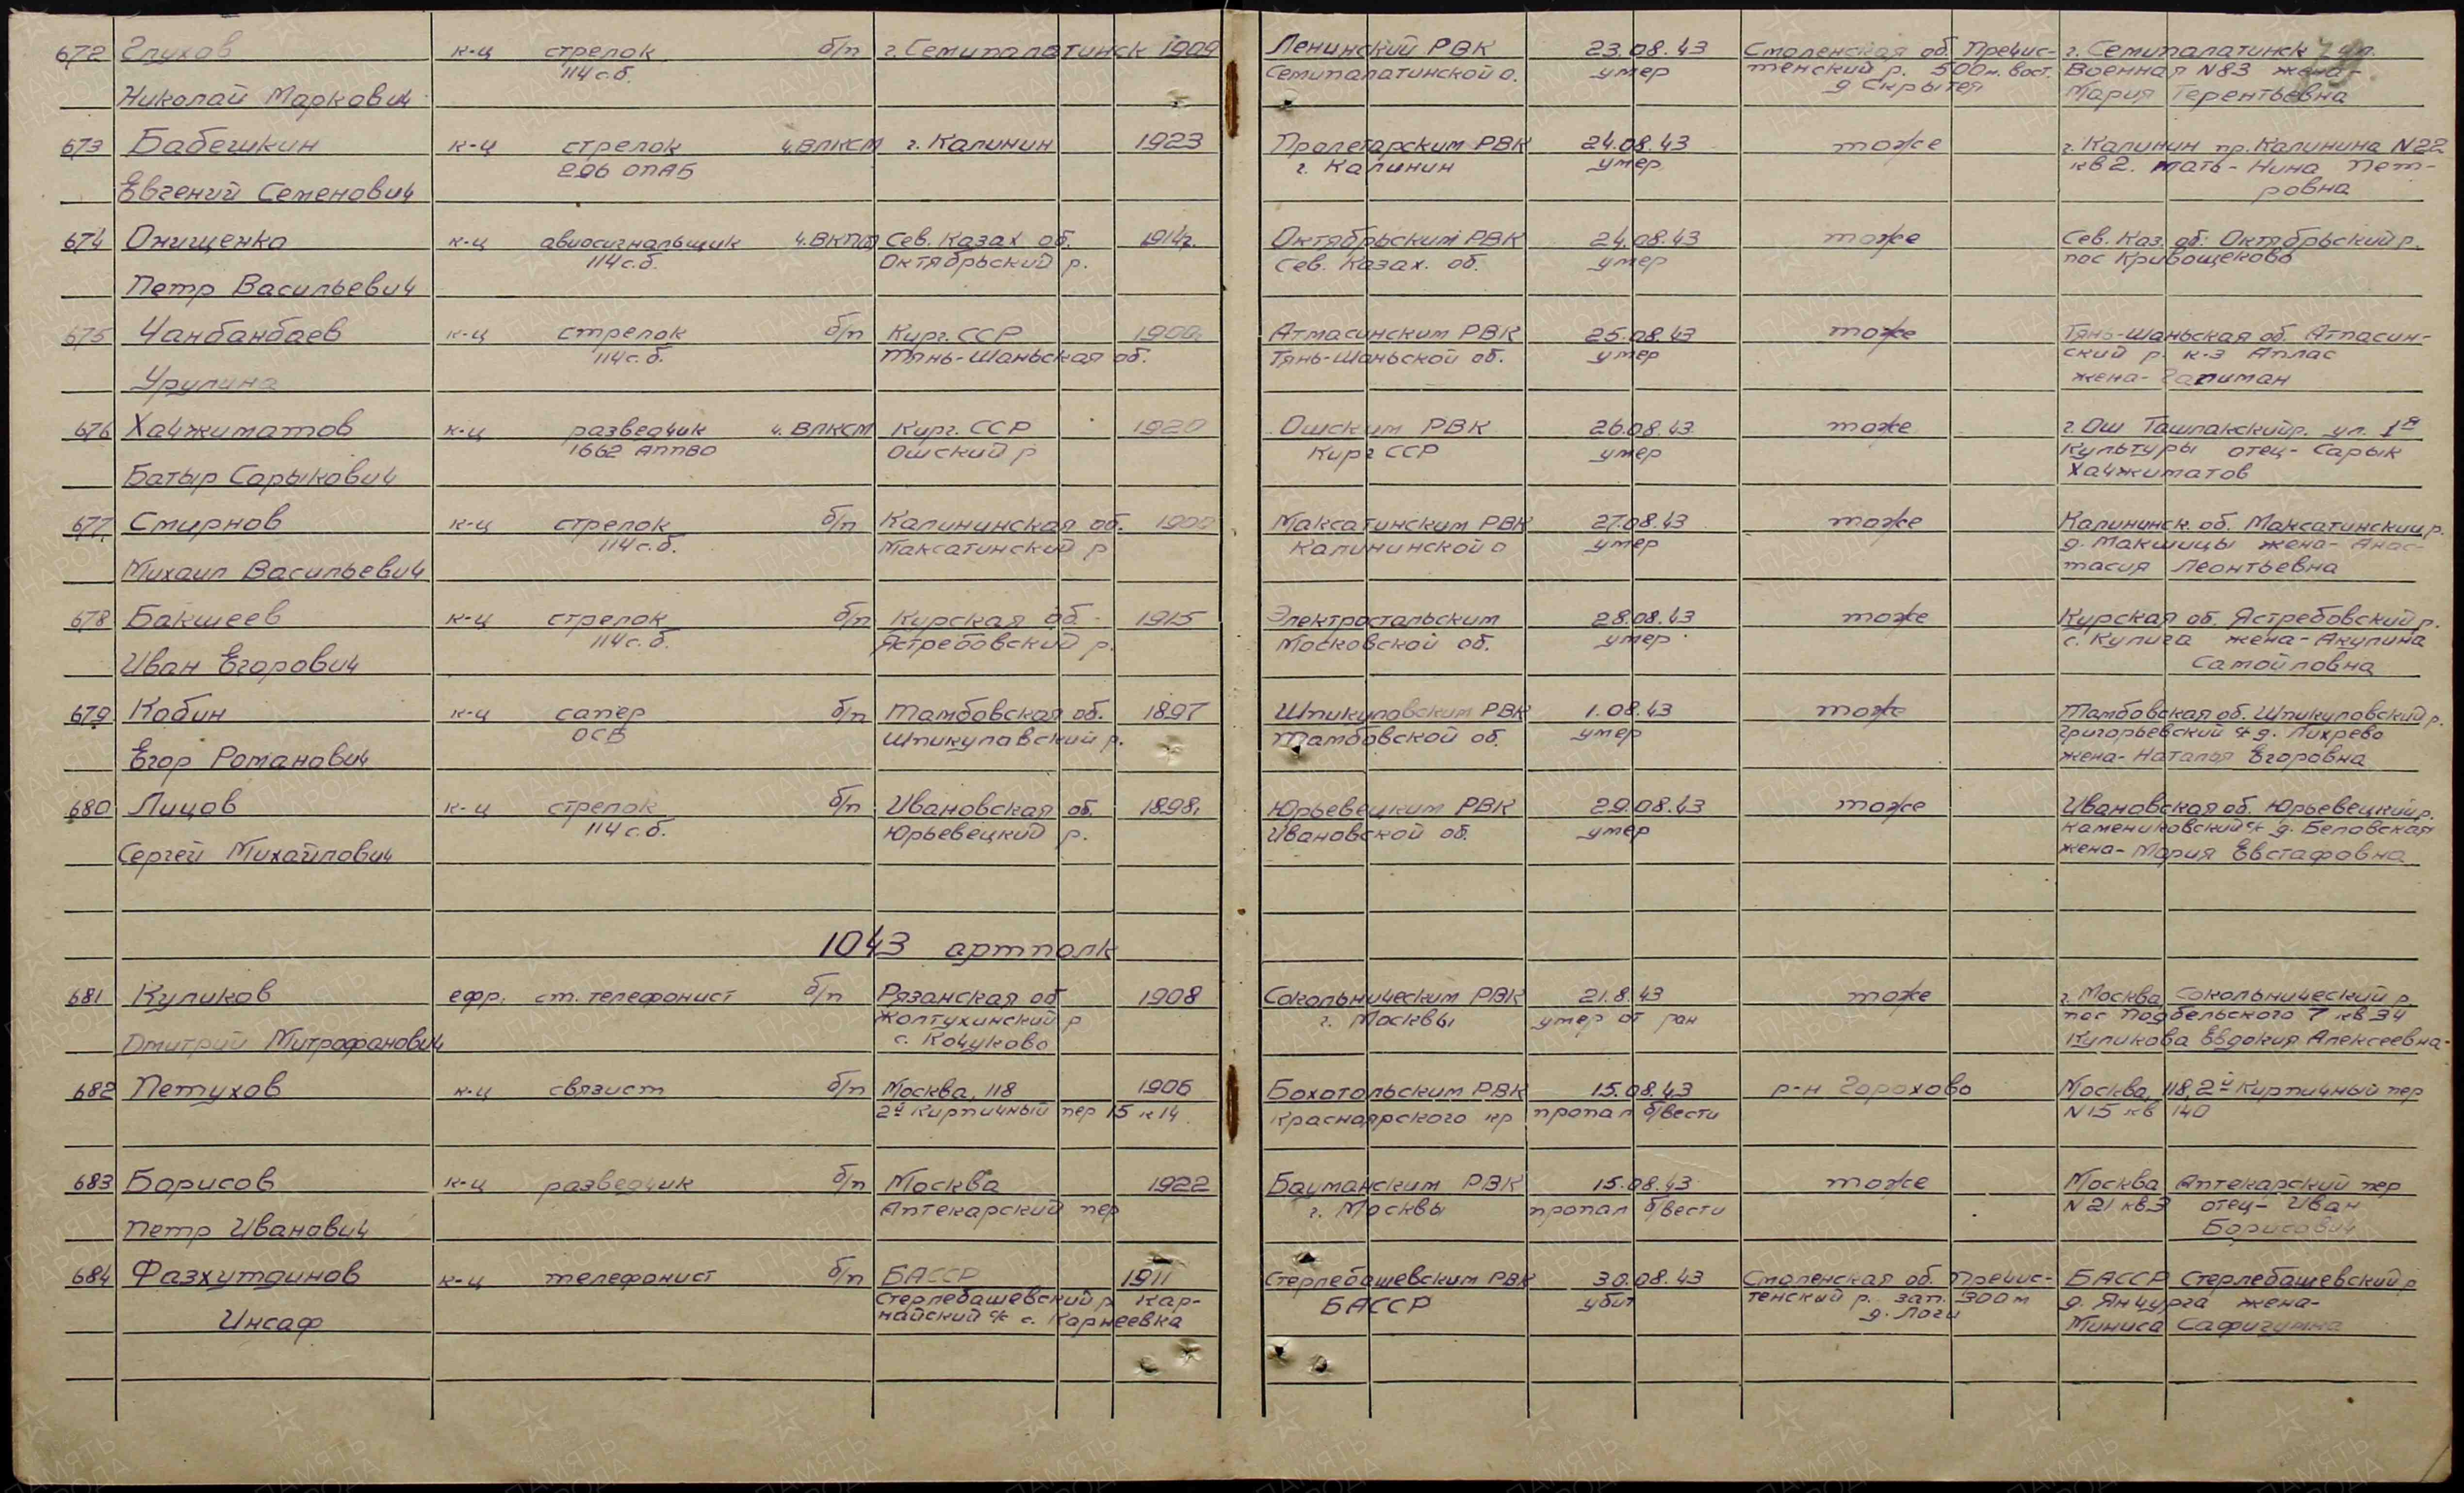 672 Глухов к-ц стрелок б/п г. Семипалатинск 1909 Ленинский РВК 23.08.43 Смоленская об. Пречис- г. Семипалатинск ул.
114 с.б. Семипалатинской о. умер тенский р. 500м. вост. Военная N83 жена-
Николай Маркович д Скрытея Мария Терентьевна
673 Бабешкин к-ц стрелок ч.ВЛКСМ г. Калинин 1923 Пролетарским РВК 24.08.43 тоже г. Калинин пр. Калинина N22
296 ОПАБ г. Калинин умер кв 2. мать- Нина Пет-
Евгений Семенович ровна
674 Онищенко к-ц авиосигнальщик ч.ВКПб Сев. Казах об. 1914г. Октябрьским РВК 24.08.43 тоже Сев. Каз. об. Октябрьский р.
114 с.б. Октябрьский р. Сев. Казах. об. умер пос Кривощеково
Петр Васильевич
675 Чанбанбаев к-ц стрелок б/п Кирг. ССР 1900 Атмасинским РВК 25.08.43 тоже Тянь-Шаньская об. Атласин-
114 с.б. Тянь-Шаньская об. Тянь-Шаньской об. умер ский р. к-з Атлас
Урулина жена-
676 Хачжиматов к-ц разведчик ч. ВЛКСМ Кирг. ССР 1920 Ошским РВК 26.08.43 тоже г. Ош Ташлакский р. ул. 1я
1662 АППВО Ошский р Кирг ССР умер Культуры отец- Сарык
Батыр Сарыкович Хачжиматов
677 Смирнов к-ц стрелок б/п Калининская об. 1900 Максатинским РВК 27.08.43 тоже Калининск. об. Максатинский р.
114 с.б. Максатинский р Калининской о умер д. Макшицы жена- Анас-
Михаил Васильевич тасия Леонтьевна
678 Бакшеев к-ц стрелок б/п Курская об. 1915 Электростальским 28.08.43 тоже Курская об. Ястребовский р.
114 с.б. Ястребовский р. Московской об. умер с. Кулига жена- Акулина
Иван Егорович Самойловна
679 Кобин к-ц сапер б/п Тамбовская об. 1897 Шпикуловским РВК 1.08.43 тоже Тамбовская об. Шпикуловский р.
ОСБ Шпикулавский р. Тамбовской об. умер Григорьевский с/с д. Лихрево
Егор Романович жена- Наталья Егоровна
680 Лицов к-ц стрелок б/п Ивановская об. 1898 Юрьевецким РВК 29.08.43 тоже Ивановская об. Юрьевецкий р.
114 с.б. Юрьевецкий р. Ивановской об. умер Камениковский с/с д. Беловская
Сергей Михайлович жена- Мария Евстафовна
1043 артполк
681 Куликов ефр. ст. телефонист б/п Рязанская об 1908 Сокольническим РВК 21.8.43 тоже г. Москва Сокольнический р.
Жолтухинский р г. Москвы умер от ран пос Подбельского 7 кв 34
Дмитрий Митрофанович с. Кочуково Куликова Евдокия Алексеевна-
682 Петухов к-ц связист б/п Москва, 118 1906 Бохотольским РВК 15.08.43 р-н Горохово Москва, 118, 2й Кирпичный пер
2й Кирпичный пер 15 к 14 Красноярского кр пропал б/вести N15 кв 140
683 Борисов к-ц разведчик б/п Москва 1922 Бауманским РВК 15.08.43 тоже Москва Аптекарский пер
Аптекарский пер г. Москвы пропал б/вести N 21 кв.3 отец- Иван
Петр Иванович Борисович
684 Фазхутдинов к-ц телефонист б/п БАССР 1911 Стерлебашевским РВК 30.08.43 Смоленская об. Пречис- БАССР Стерлебашевский р
Стерлебашевский р Кар- БАССР убит тенский р. зап. 300м д. Янчурга жена-
Инсаф найский с/с с. Карнеевка д. Логи Миниса